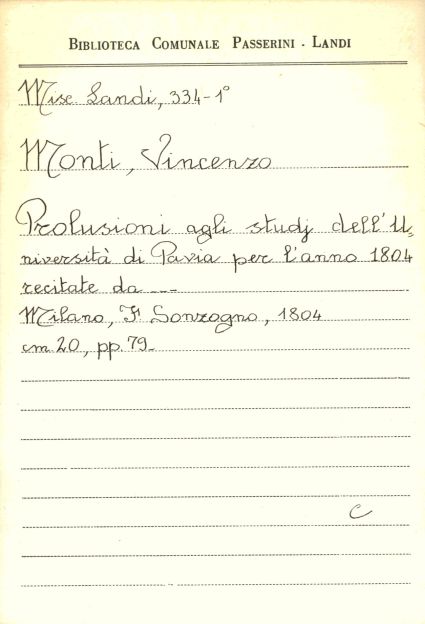 BIBLIOTECA COMUNALE PASSERINI - LANDI
Misc Landi, 334-1°
Monti, Vincenzo
Prolusioni agli studj dell'U=
niversità di Pavia per l'anno 1804
recitate da ---
Milano, F Sonzogno, 1804
cm 20, pp. 79-
C